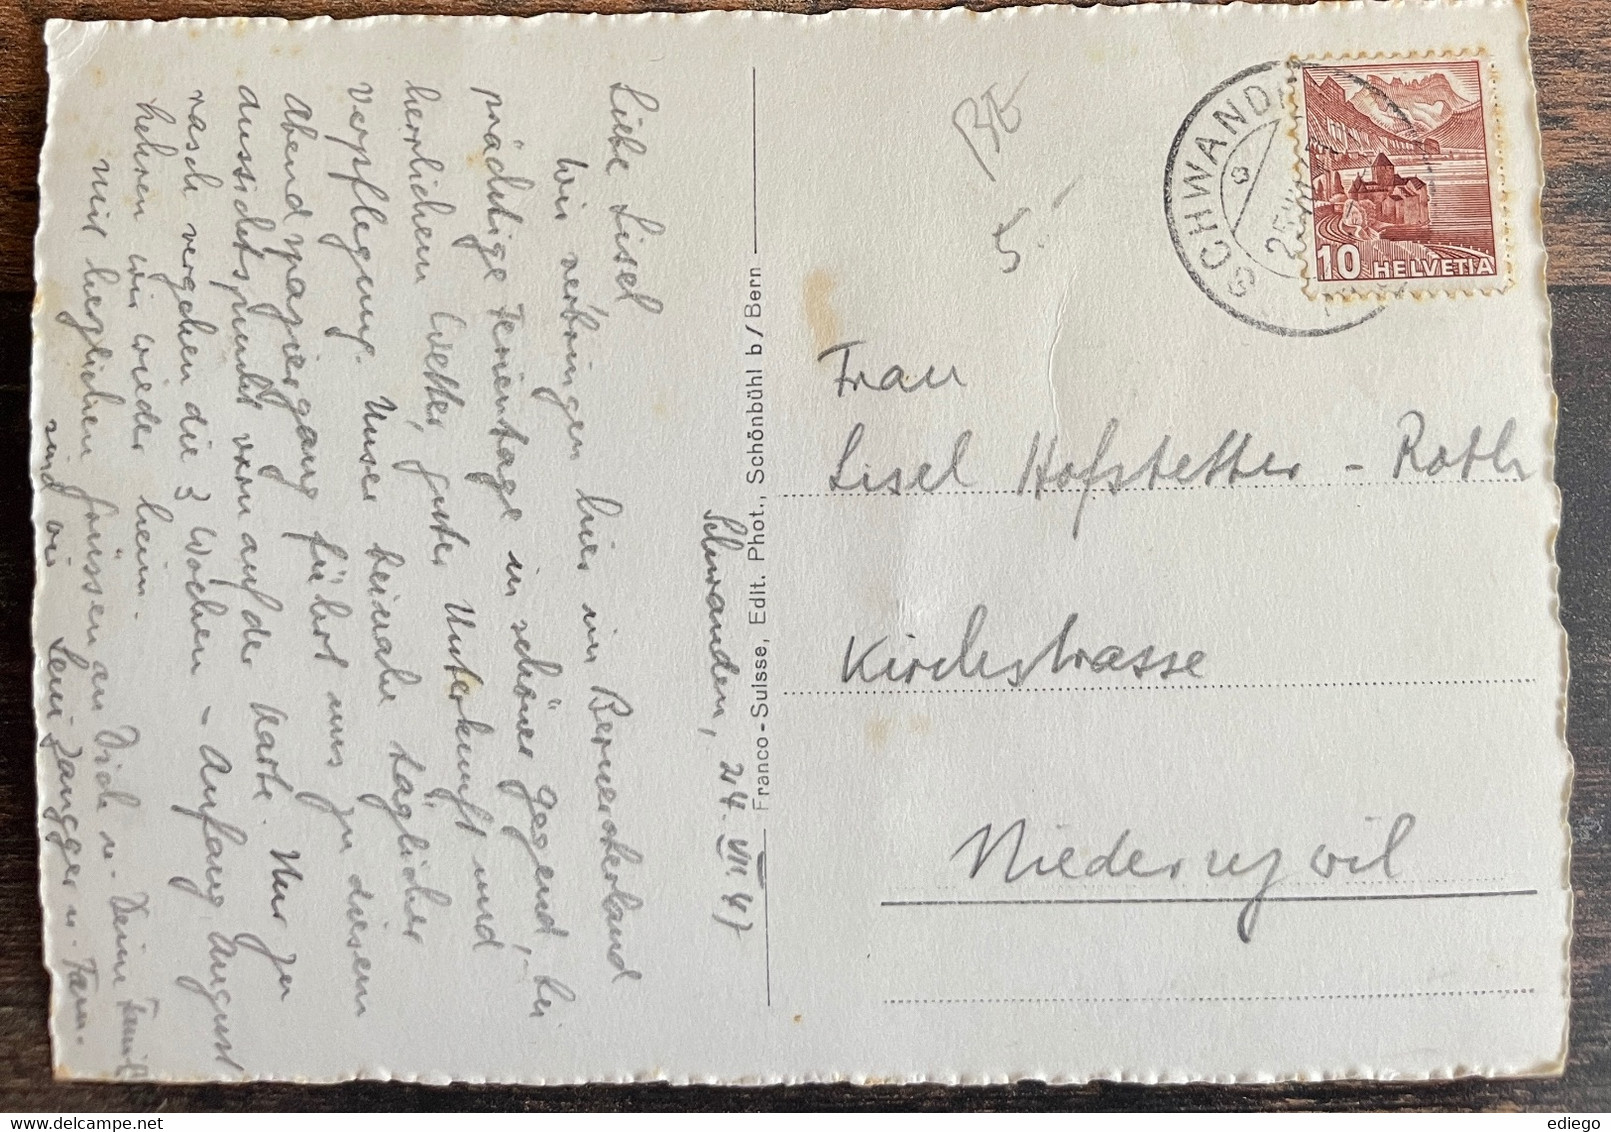 Schwanden, 24. VII. 47
Liebe Lisel
Wir verbringen hier im Berneroberland
prächtige Ferientage in schöner Gegend, bei
herrlichem Wetter, guter Unterkunft und
Verpflegung. Unser beinahe täglicher
Abendspaziergang führt uns zu diesem
Aussichtspunkt vorn auf der Karte. Nur zu
rasch vergehen die 3 Wochen - Anfang August
kehren wir wieder heim.
Mit herzlichen Grüssen an Dich u. Deine Famil
sind wir Leni Zangger u. Fam.
Franco-Suisse, Edit. Phot., Schönbühl b/Bern
BE
5.-
SCHWANDEN
25.VII.47
10 HELVETIA
Frau
Lisel Hofstetter - Roth
Kirchstrasse
Niederuzwil
ediego